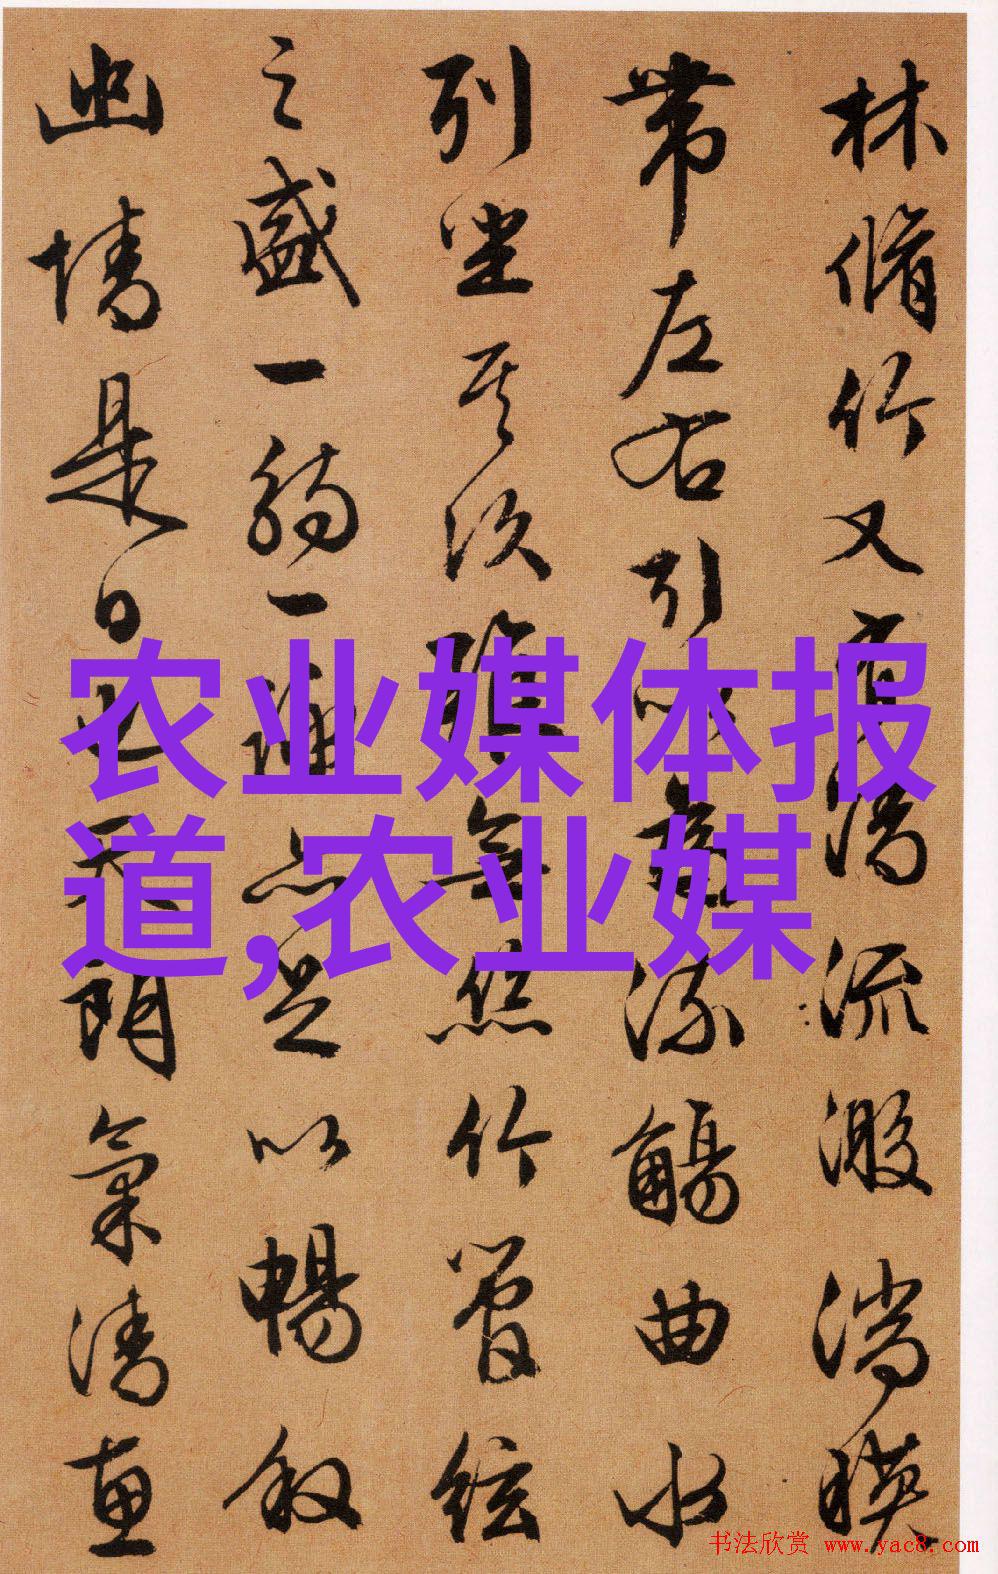 林脩竹又有清流激湍暎
帶左右引以為流觴曲水
列坐其次雖無絲竹管絃
之盛一觴一詠亦足以暢叙
幽情是日也天朗氣清惠
农业媒体报
道,农业媒
书法欣赏 www.yac8.com